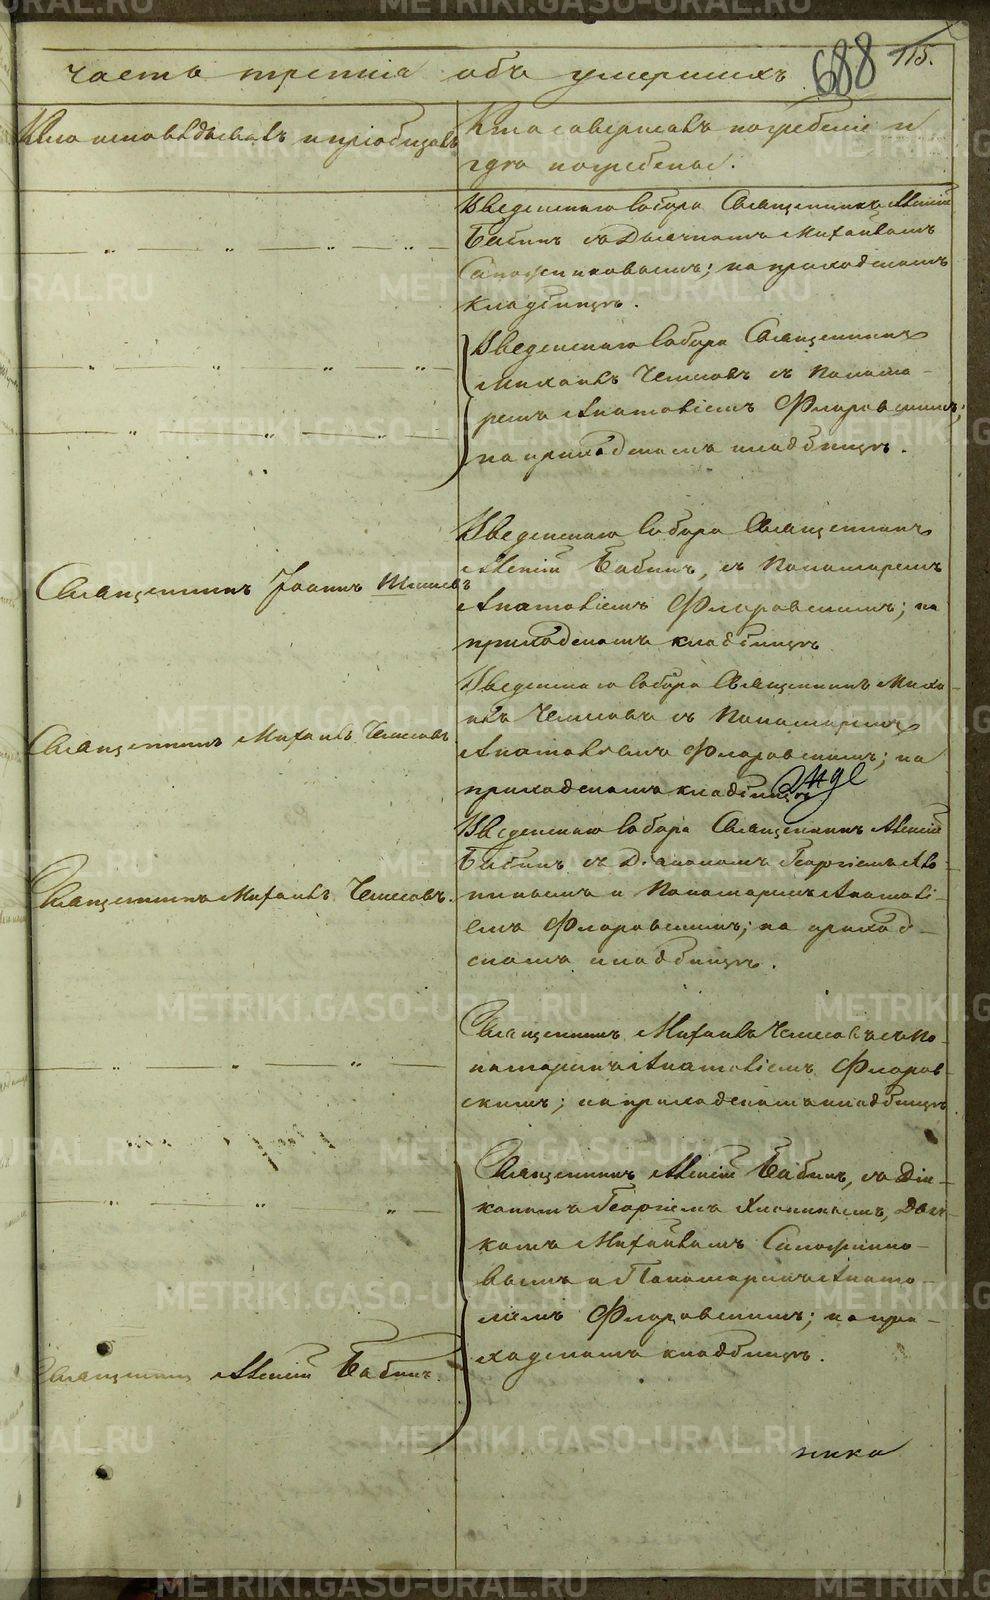 часть третія объ умершихъ
688
115.
Кто исповѣдывалъ и пріобщалъ
Кто совершалъ погребеніе и
гдѣ погребены.
Введенскаго Собора Священникъ
Бабинъ съ Дьячкомъ Михаиломъ
Сапожниковымъ; на приходскомъ
кладбищѣ.
Введенскаго Собора Священникъ
Михаилъ съ Понома-
ремъ Анатоліемъ Флоровскимъ;
на приходскомъ кладбищѣ.
Священникъ Іоаннъ
Введенскаго Собора Священникъ
Бабинъ, съ Пономаремъ
Анатоліемъ Флоровскимъ; на
приходскомъ кладбищѣ
Священникъ Михаилъ
Введенскаго Собора Священникъ Миха-
илъ съ Пономаремъ
Анатоліемъ Флоровскимъ; на
приходскомъ кладбищѣ
Священникъ Михаилъ
Введенскаго Собора Священникъ
Бабинъ съ Діакономъ Георгіемъ
и Пономаремъ Анатолі-
емъ Флоровскимъ; на приход-
скомъ кладбищѣ.
Священникъ Михаилъ съ По-
номаремъ Анатоліемъ Флоров-
скимъ; на приходскомъ кладбищѣ
Священникъ Бабинъ, съ Діа-
кономъ Георгіемъ Дьяч-
комъ Михаиломъ Сапожнико-
вымъ и Пономаремъ Анато-
ліемъ Флоровскимъ; на при-
ходскомъ кладбищѣ.
Священникъ Бабинъ.
METRIKI.GASO-URAL.RU